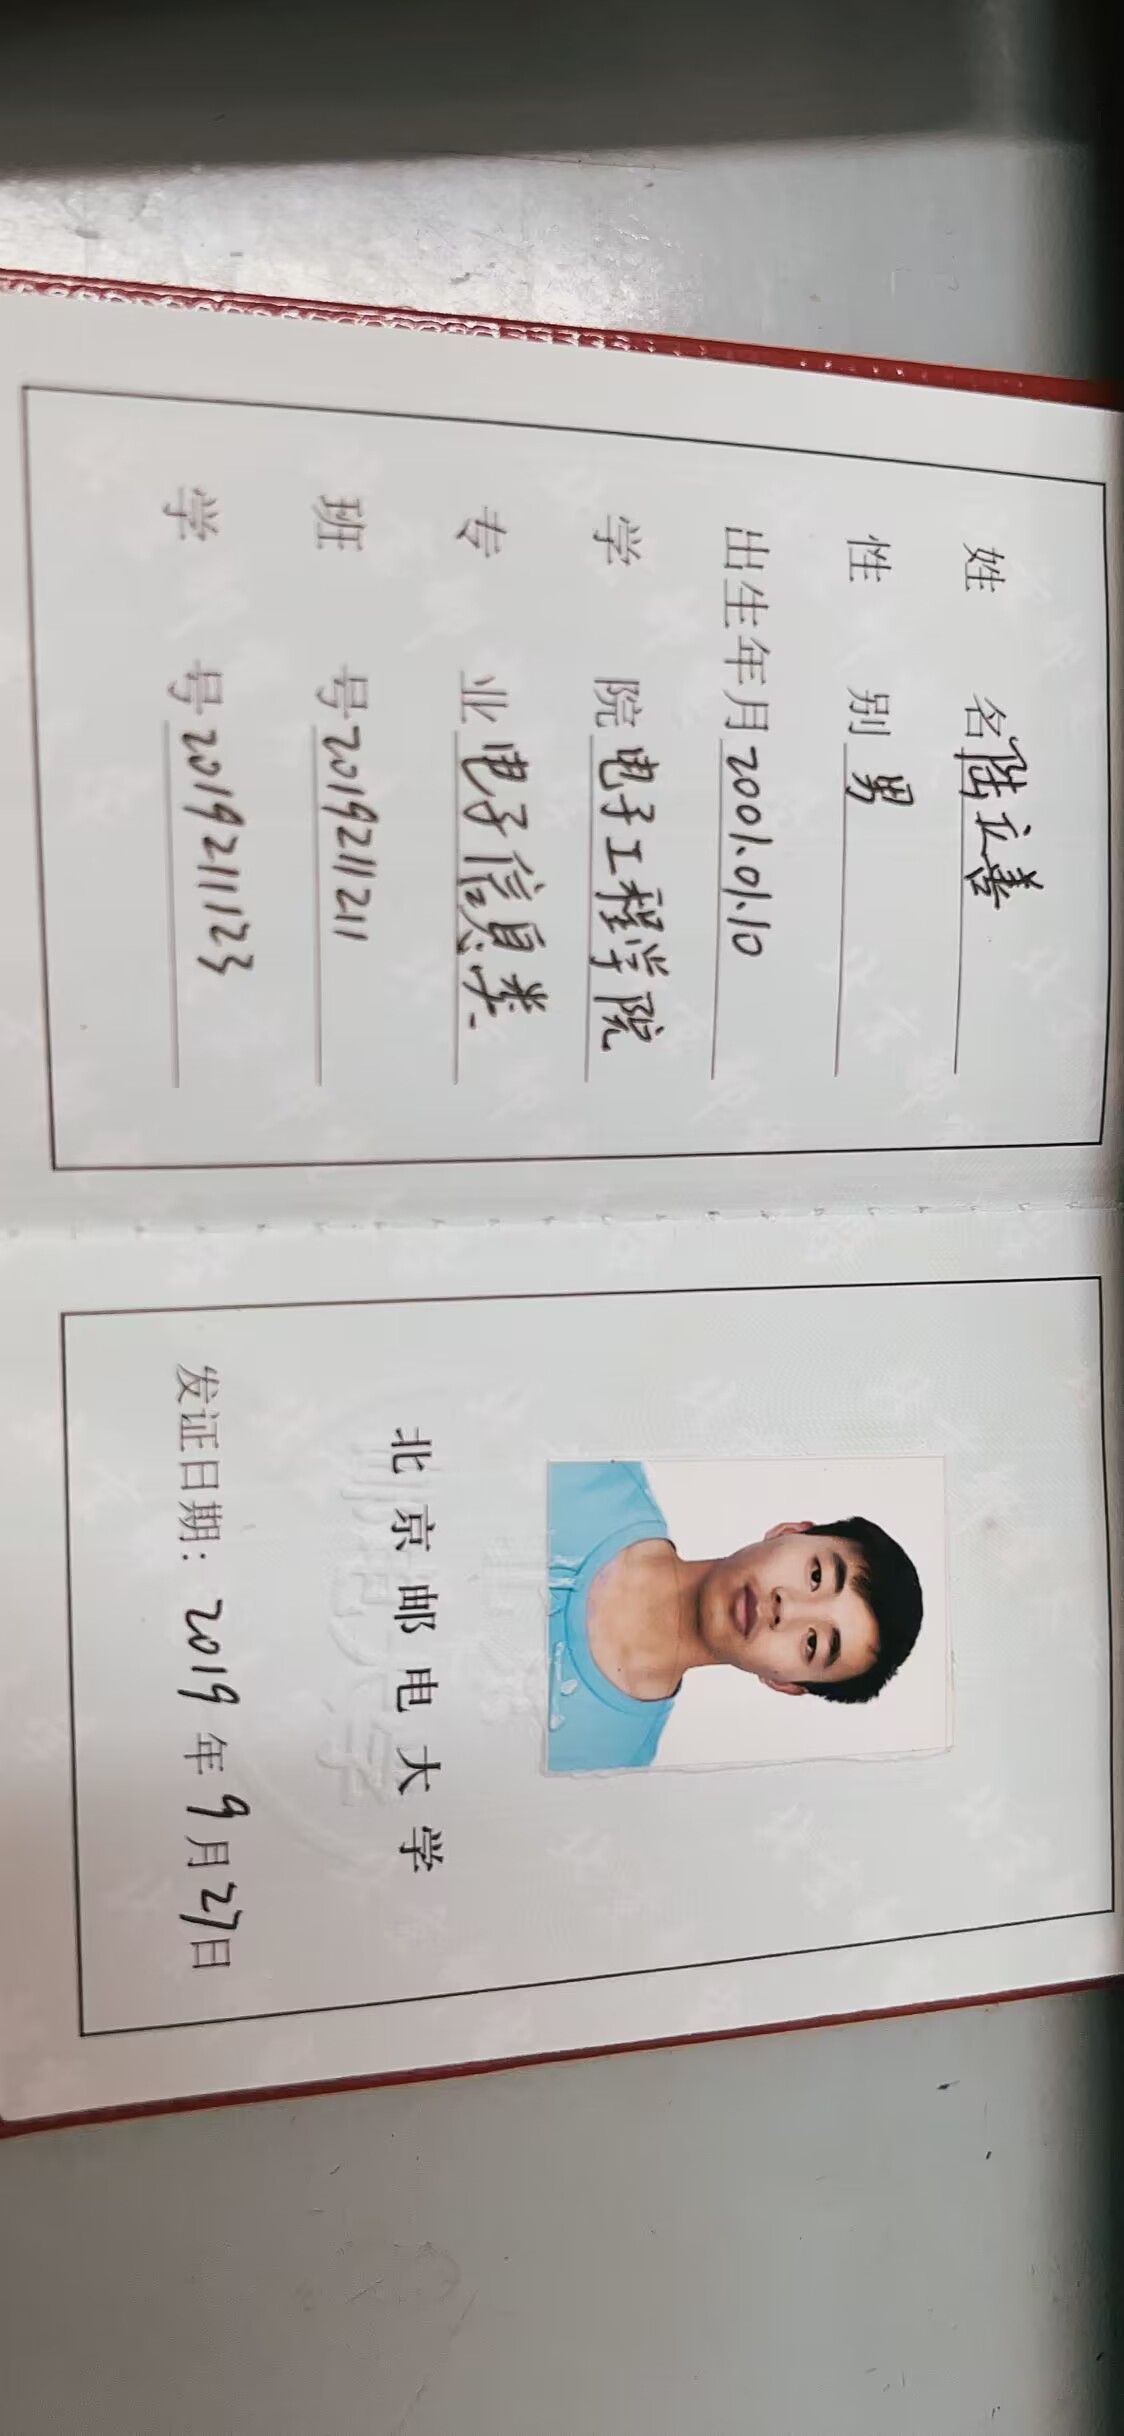 姓名 陆立善
性别 男
出生年月 2001.01.10
学院 电子工程学院
专业 电子信息类
班号 2019211211
学号 2019211123
北京邮电大学
发证日期：2019年9月27日